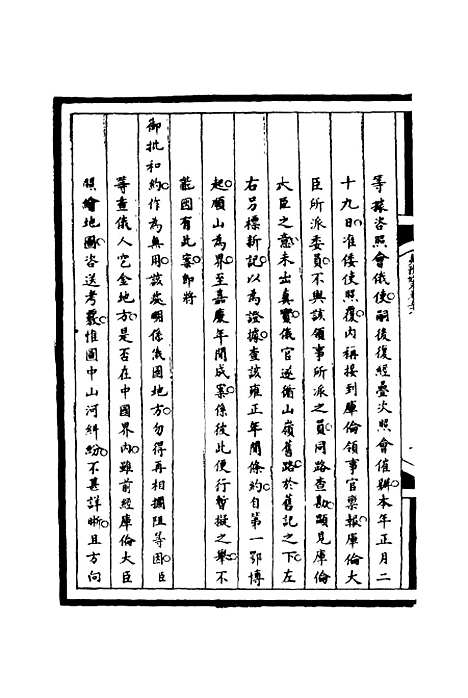 等據咨照會俄使嗣後復經疊次照會催辦本年正月二
十九日准倭使照覆内稱接到庫倫領事官稟報庫倫大
臣所派委員不與該領事所派之員同路查勘顯見庫倫
大臣之意未出真實俄官遂循山嶺舊路於舊記之下左
右另標新記以為證據查該雍正年間條約自第一鄂博
起順山為界至嘉慶年間成案係彼此便行暫擬之舉不
能因有此案即將
御批和約作為無用該處明係俄國地方勿得再相攔阻等因臣
等查俄人挖金地方是否在中國界內雖前經庫倫大臣
照繪地圖咨送考覈惟圖中山河糾紛不甚詳晰且方向